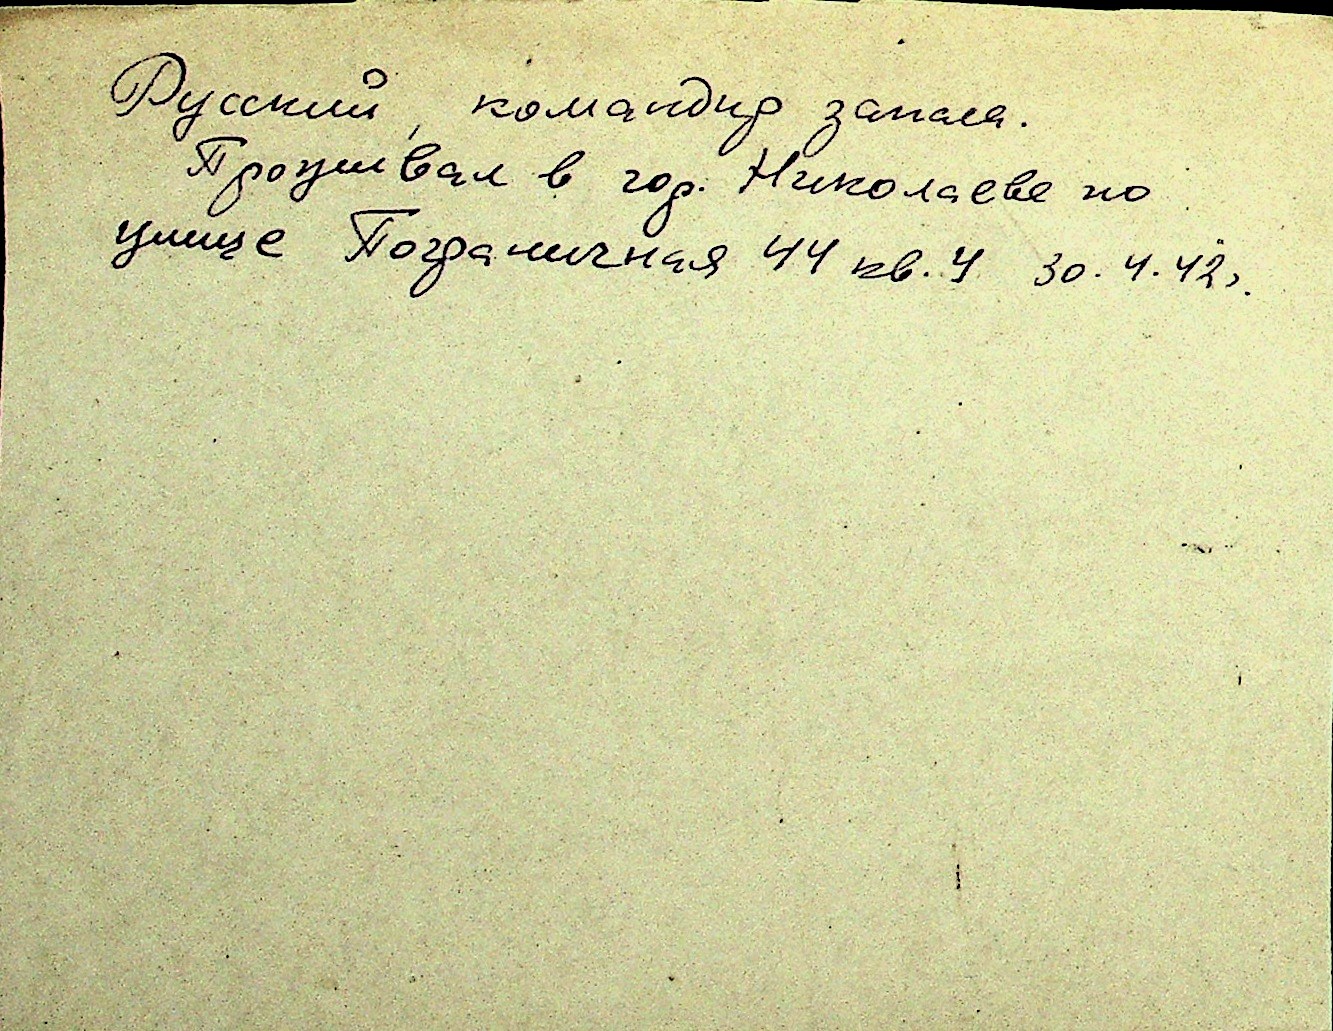 Русский, командир запаса.
Проживал в гор. Николаеве по
улице Пограничная 44 кв. 4 30.4.42г.